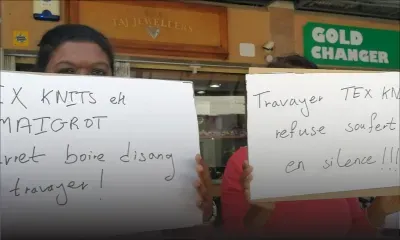 TM JEWELLERS
GOLD
CHANGER
EX KNITS ek
MAIGROT
rret boire disang
travayer !
Travayer TEX KN
refuse soufert
en silence!!!